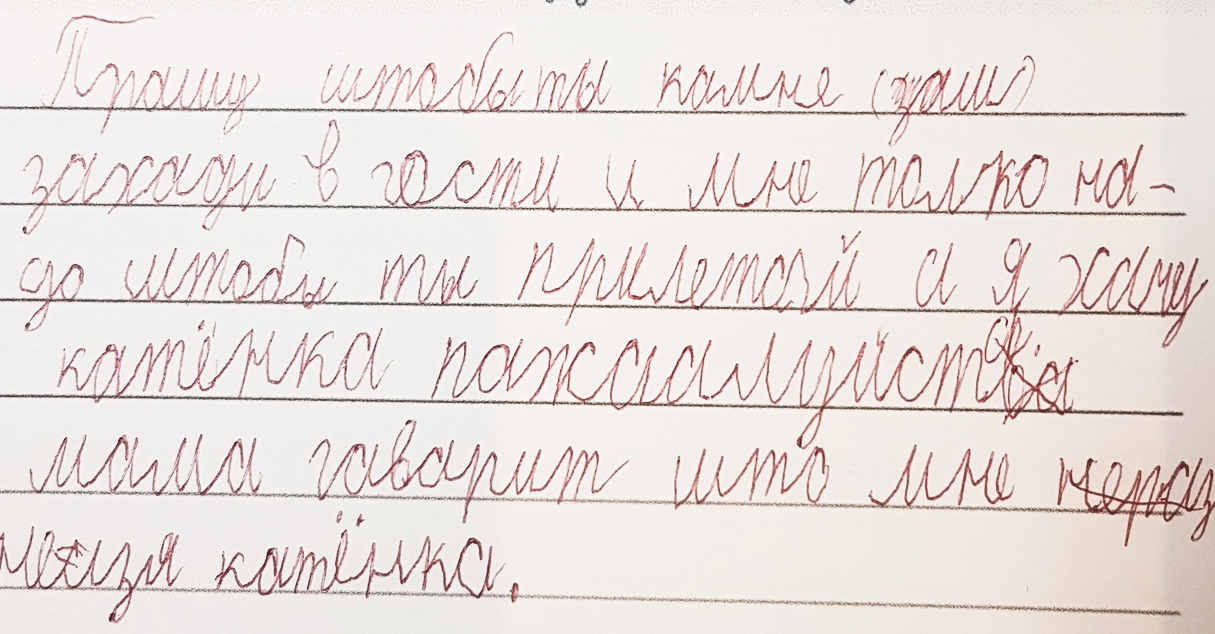 Прашу штобы ты камне (зaш)
захади в гости и мне толко на-
до штобы ты прилетай а я хачу
катёнка пажаалуйста
мама гаварит што мне
нелзя катёнка.